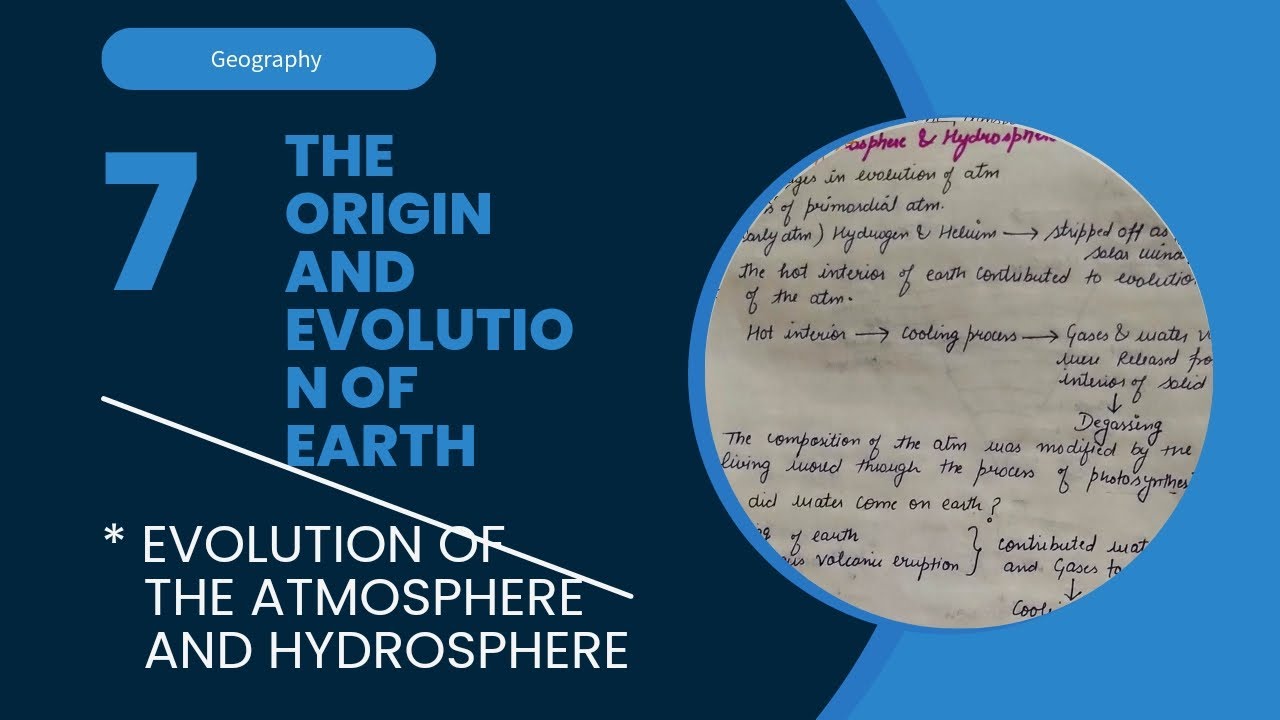 Geography
7
THE
ORIGIN
AND
EVOLUTIO
N OF
EARTH
* EVOLUTION OF
THE ATMOSPHERE
AND HYDROSPHERE
osphere & Hydrosphere
ges in evolution of atm
of primordial atm.
early atm) Hydrogen & Helium → stripped off as
solar wind
the hot interior of earth contributed to evolution
of the atm.
Hot interior → cooling process → Gases & water v
were Released fro
interior of solid
↓
Degassing
The composition of the atm was modified by the
living world through the process of photosynthesi
did water come on earth?
g of earth
ous volcanic eruption } contributed wat
and Gases to
↓
Cooli